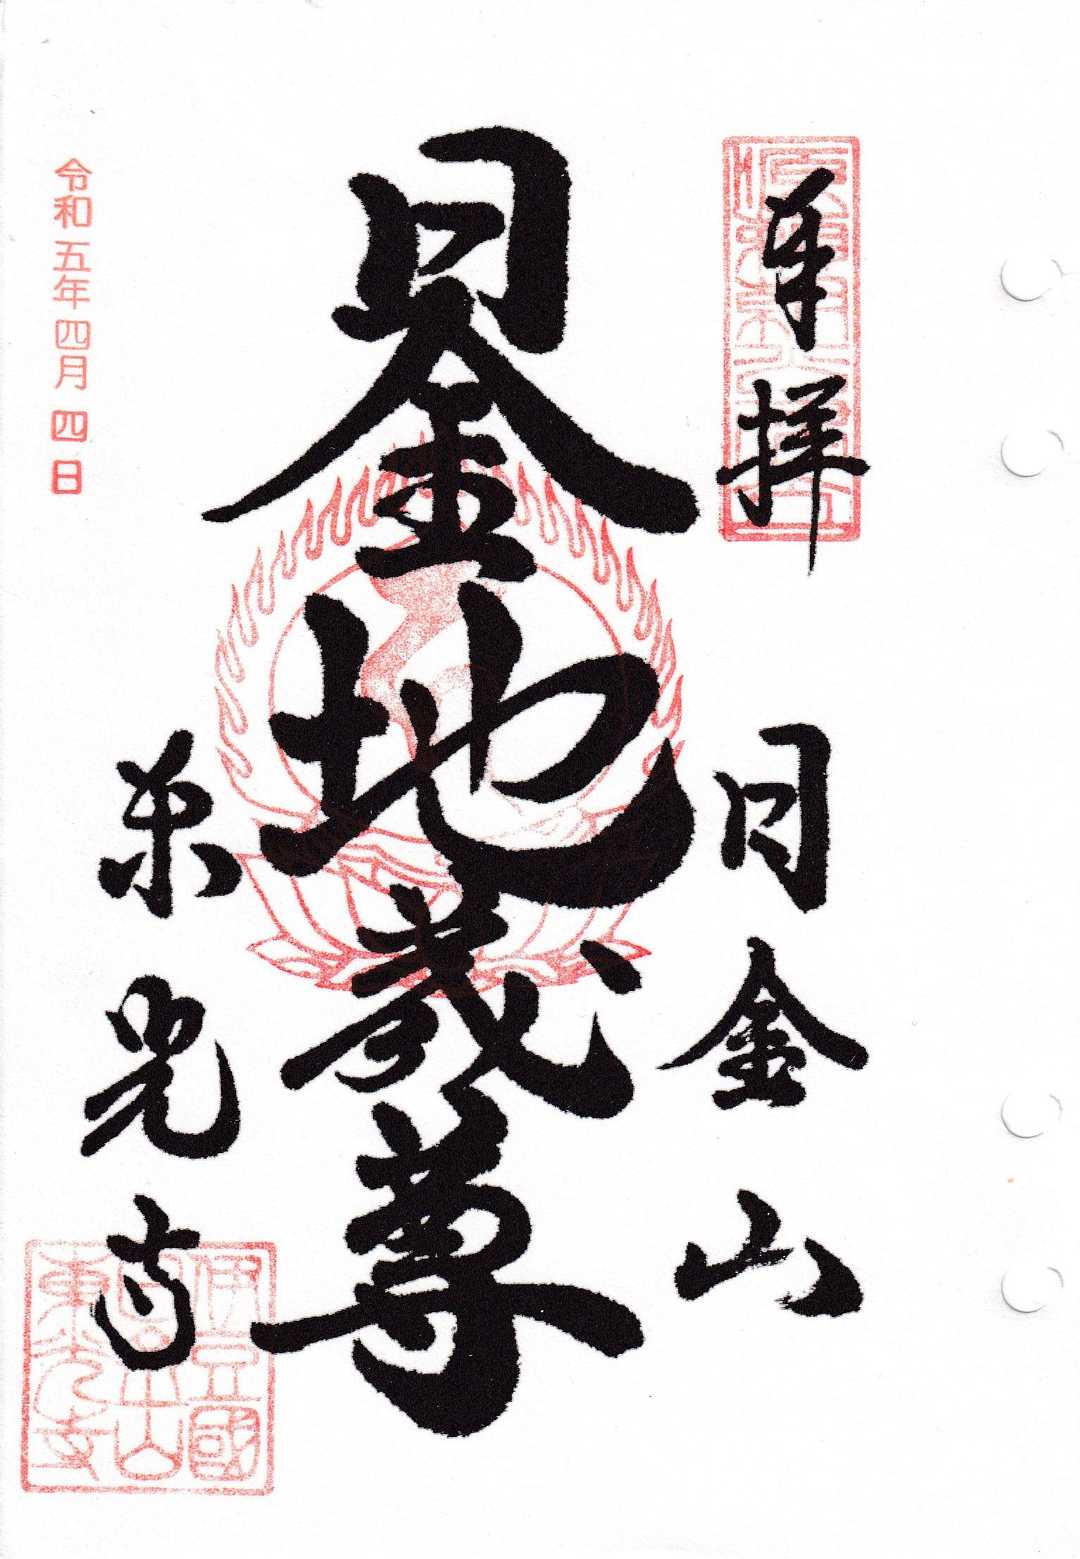 奉拝
日金山
日金地蔵尊
東光寺
令和五年四月四日
伊豆國
日金山
東光寺